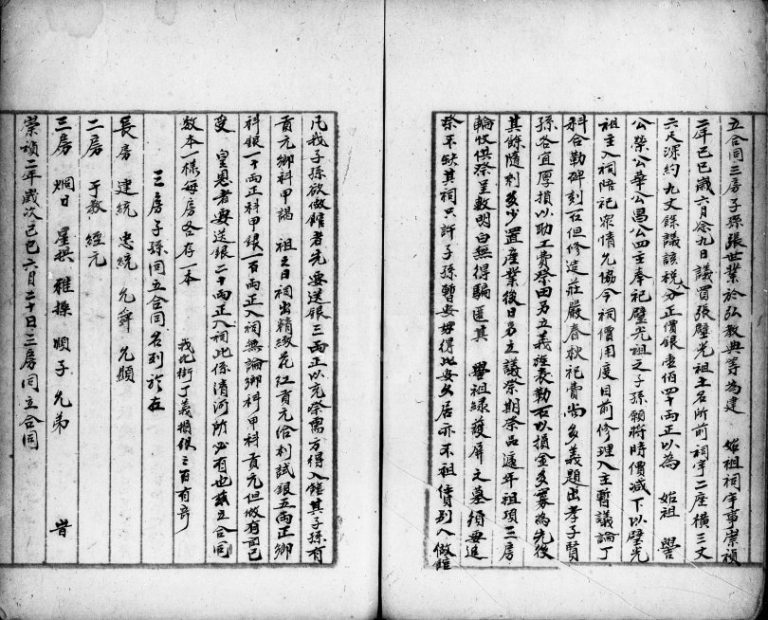 立合同三房子孫張世業於弘教典等為建　始祖祠宇事崇禎
二年己巳歲六月念九日議買張璧光祖土名所前祠宇二座橫三丈
六尺深約九丈餘議該稅分正價銀壹伯四十兩正以為　始祖　學
公榮公華公昌公四主奉祀璧光祖之子孫領將時價減下以璧光
祖主入祠陪祀眾情允協今祠價用度目前修理入主暫議論丁
科合勒碑刻石但修造莊嚴春秋祀費尚多義題出孝子賢
孫各宜厚損以助工費祭田另立義經表勒石以損金多寡為先後
其餘隨剩多少置產業後日另立議祭期祭品遞年祖項三房
輪收俱祭呈數明白無得騙匿其　學祖綠護屏文墓須要進
祭不缺其祠只許子孫暫安毋得北安久居亦不祖賃列入做館
凡我子孫欲做館者先要送銀三兩正以充祭需方得入館其子孫有
貢元鄉科甲謁　祖之日祠出精緻花紅貢元合利試銀五兩正鄉
科銀一十兩正科甲銀一百兩正入祠無論鄉科甲科貢元但做有司已
受　皇恩者要送銀二十兩正入祠此係清河所必有也茲立合同
數本一樣每房各存一本
我化街丁義損銀三百有奇
三房子孫同立合同名列於左
長房　建統　忠統　允舜　允顯
二房　于教　經元
三房　炯日　星拱　雅操　順子　允弟
崇禎二年歲次己巳六月二十日三房同立合同